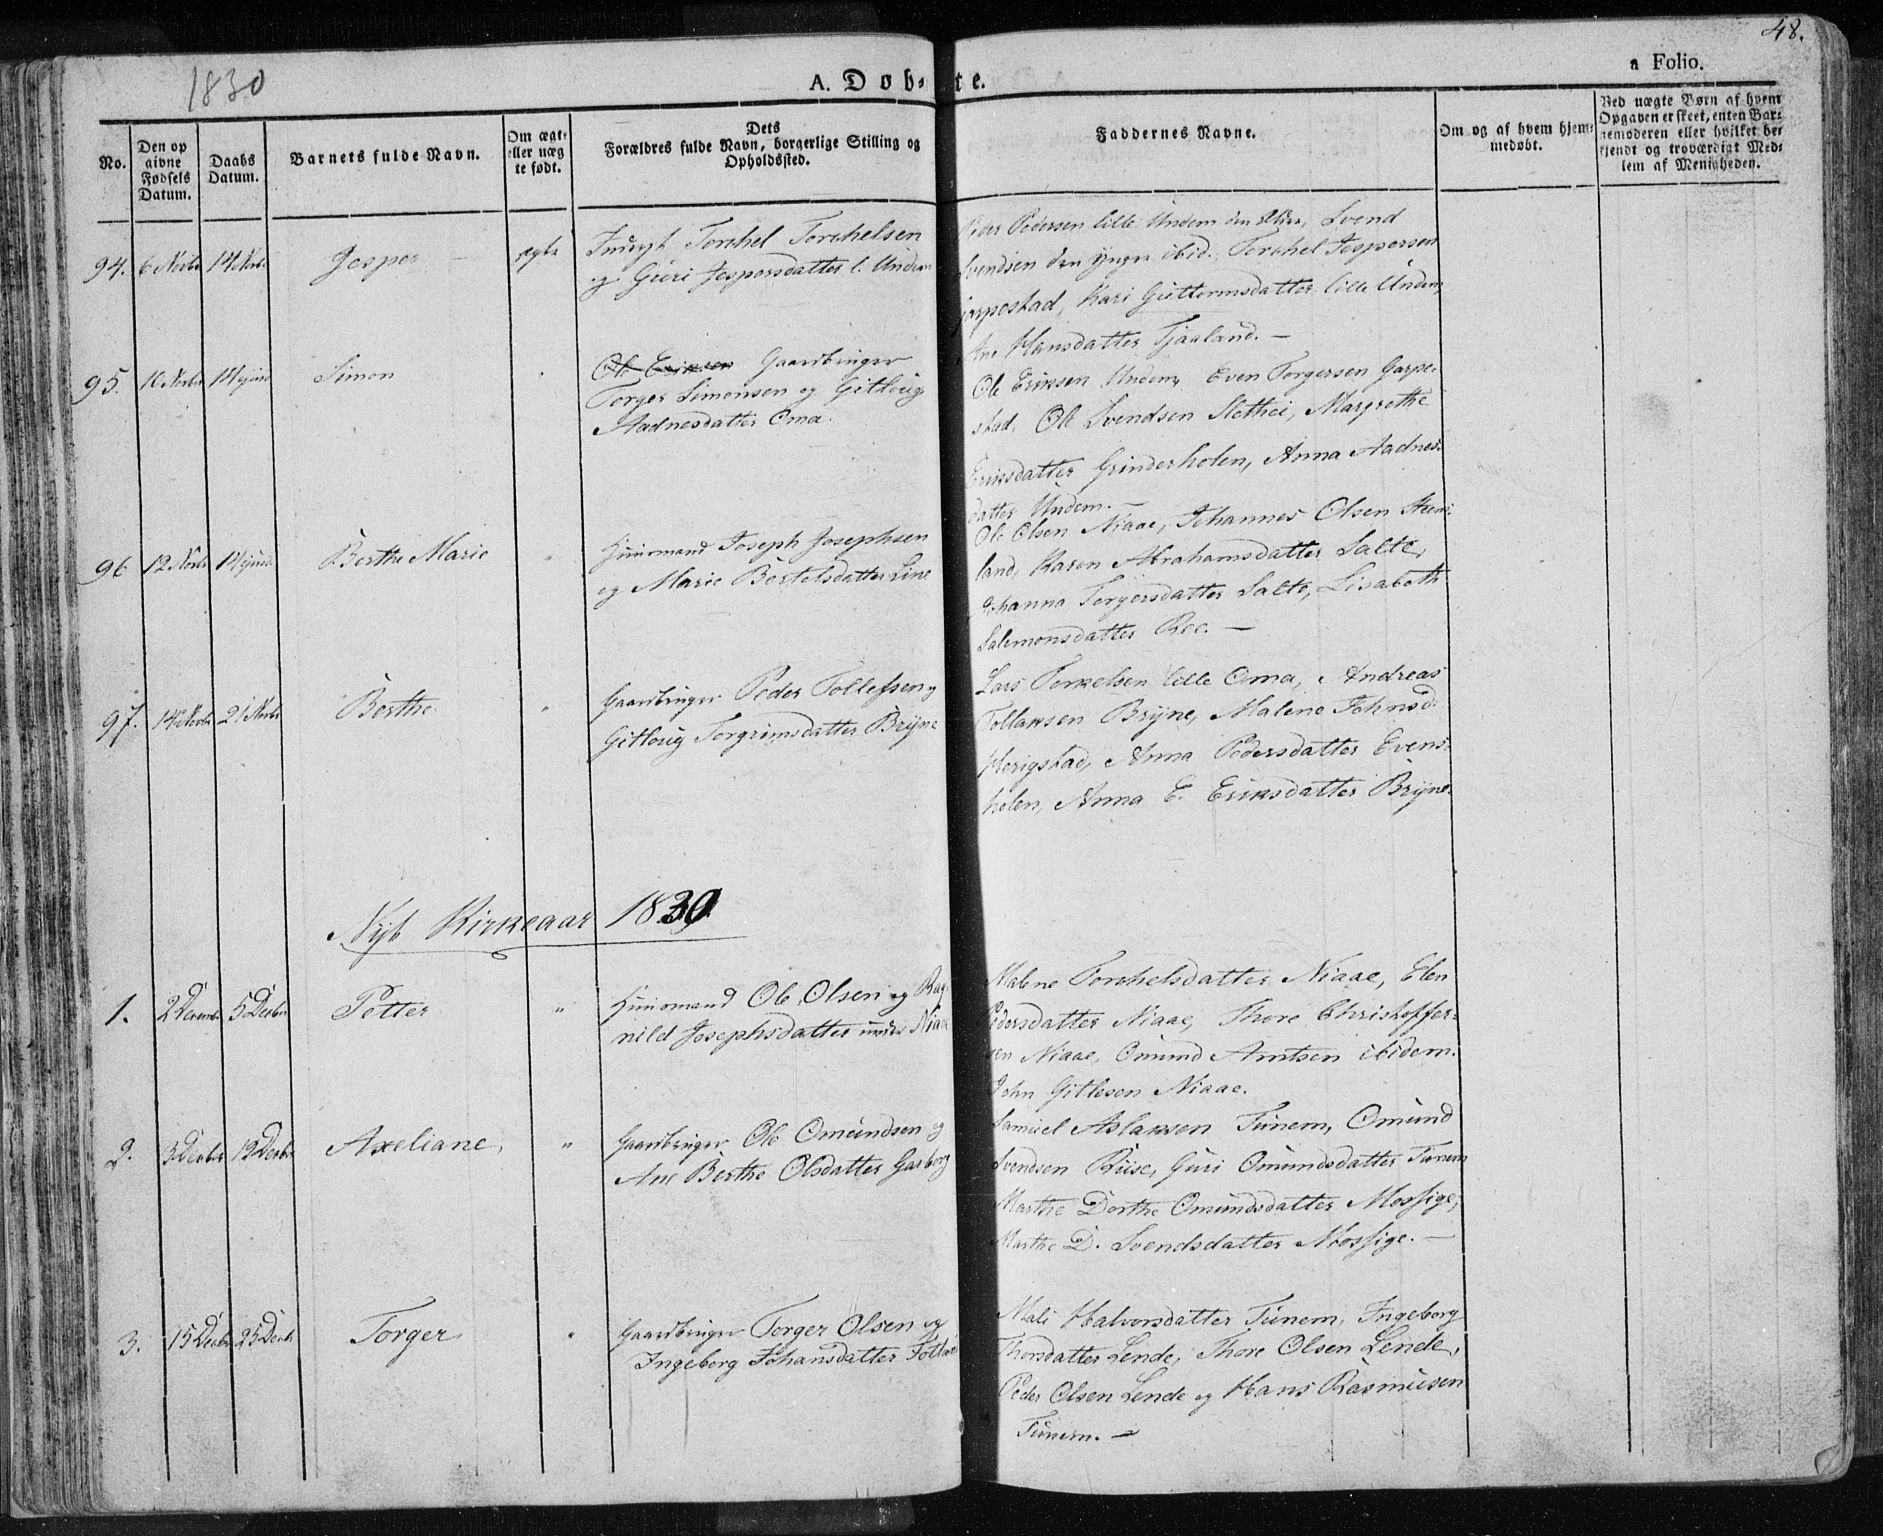 48.
1830
A. Døbte.
a Folio.
No.
Den op
givne
Fødsels
Datum.
Daabs
Datum.
Barnets fulde Navn.
Om ægte
eller uæg
te født.
Dets
Forældres fulde Navn, borgerlige Stilling og
Opholdssted.
Faddernes Navne.
Om og af hvem hjem-
medøbt.
Ved uægte Børn af hvem
Opgaven er skeet, enten Bar-
nemoderen eller hvilket be-
kjendt og troværdigt Med-
lem af Menigheden.
94. 6 Novbr 14 Novbr. Jesper ægte
Torchel Torchelsen
og Guri Jespersdatter l. Undem
Peder Pedersen lille Undem den Svend
Svendsen den yngre ibid., Torchel Jespersen
Garpestad, Kari Guttormsdatter lille Undem,
Ane Hansdatter Tjaaland. —
95. 10 Novbr 14 Simon
Ole Eriksen Gaardbruger
Torger Simonsen og Gitlaug
Aadnesdatter Oma.
Ole Eriksen Undem, Even Torgersen Garpe-
stad, Ole Svendsen Slethei, Margrethe
Eriksdatter Grinderholen, Anna Aadnes-
datter Undem. —
96 12 Novbr 14 Berthe Marie "
Huusmand Joseph Josephsen
og Marie Bertelsdatter Line
Ole Olsen Niaae, Johannes Olsen
land, Karen Abrahamsdatter Salte,
Johanna Torgersdatter Salte, Lisabeth
Salemonsdatter Ree. —
97. 14 Novbr 21 Novbr Berthe "
Gaardbruger Peder Tollefsen og
Gitlaug Torgrimsdatter Bryne
Lars Torkelsen lille Oma, Andreas
Tollaksen Bryne, Malene Johnsd.
Herigstad, Anna Pedersdatter Evens-
holen, Anna E. Eriksdatter Bryne.
Nyt Kirkeaar 1830
1. 2 Decembr 5 Decbr Petter "
Huusmand Ole Olsen og Rag-
nild Josephsdatter under Niaae
Malene Torchelsdatter Niaae, Elen
Pedersdatter Niaae, Thore Christoffer-
sen Niaae, Omund Arntsen ibidem.
John Gitlesen Niaae.
2. 3 Decbr 12 Decbr Axeliane, "
Gaardbruger Ole Omundsen og
Ane Berthe Olsdatter Garborg
Samuel Aslaksen Tunem, Omund
Svendsen Riise, Guri Omundsdatter Tunem
Marthe Dorthe Omundsdatter Mossige,
Marthe D. Svendsdatter Mossige. —
3. 15 Decbr 25 Decbr Torger "
Gaardbruger Torger Olsen og
Ingeborg Johansdatter
Mali Halvorsdatter Tunem, Ingeborg
Thorsdatter Lende, Thore Olsen Lende,
Peder Olsen Lende og Hans Rasmusen
Tunem. —